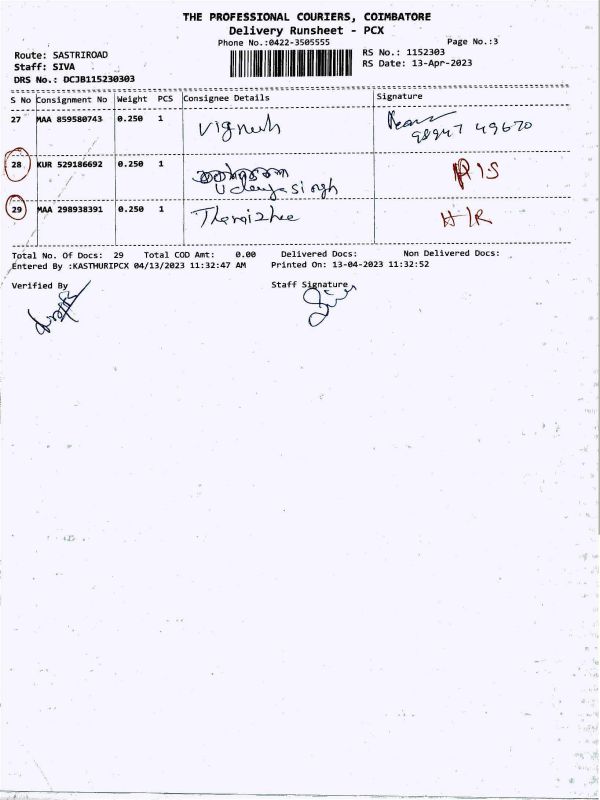 THE PROFESSIONAL COURIERS, COIMBATORE
Delivery Runsheet - PCX
Phone No.:0422-3505555 Page No.:3
Route: SASTRIROAD RS No.: 1152303
Staff: SIVA RS Date: 13-Apr-2023
DRS No.: DCJB115230303
S No Consignment No Weight PCS Consignee Details Signature
27 MAA 859580743 0.250 1 Vignesh 98947 49670
28 KUR 529186692 0.250 1 RIS
Udayasingh
29 MAA 298938391 0.250 1 H/R
Total No. Of Docs: 29 Total COD Amt: 0.00 Delivered Docs: Non Delivered Docs:
Entered By :KASTHURIPCX 04/13/2023 11:32:47 AM Printed On: 13-04-2023 11:32:52
Verified By Staff Signature